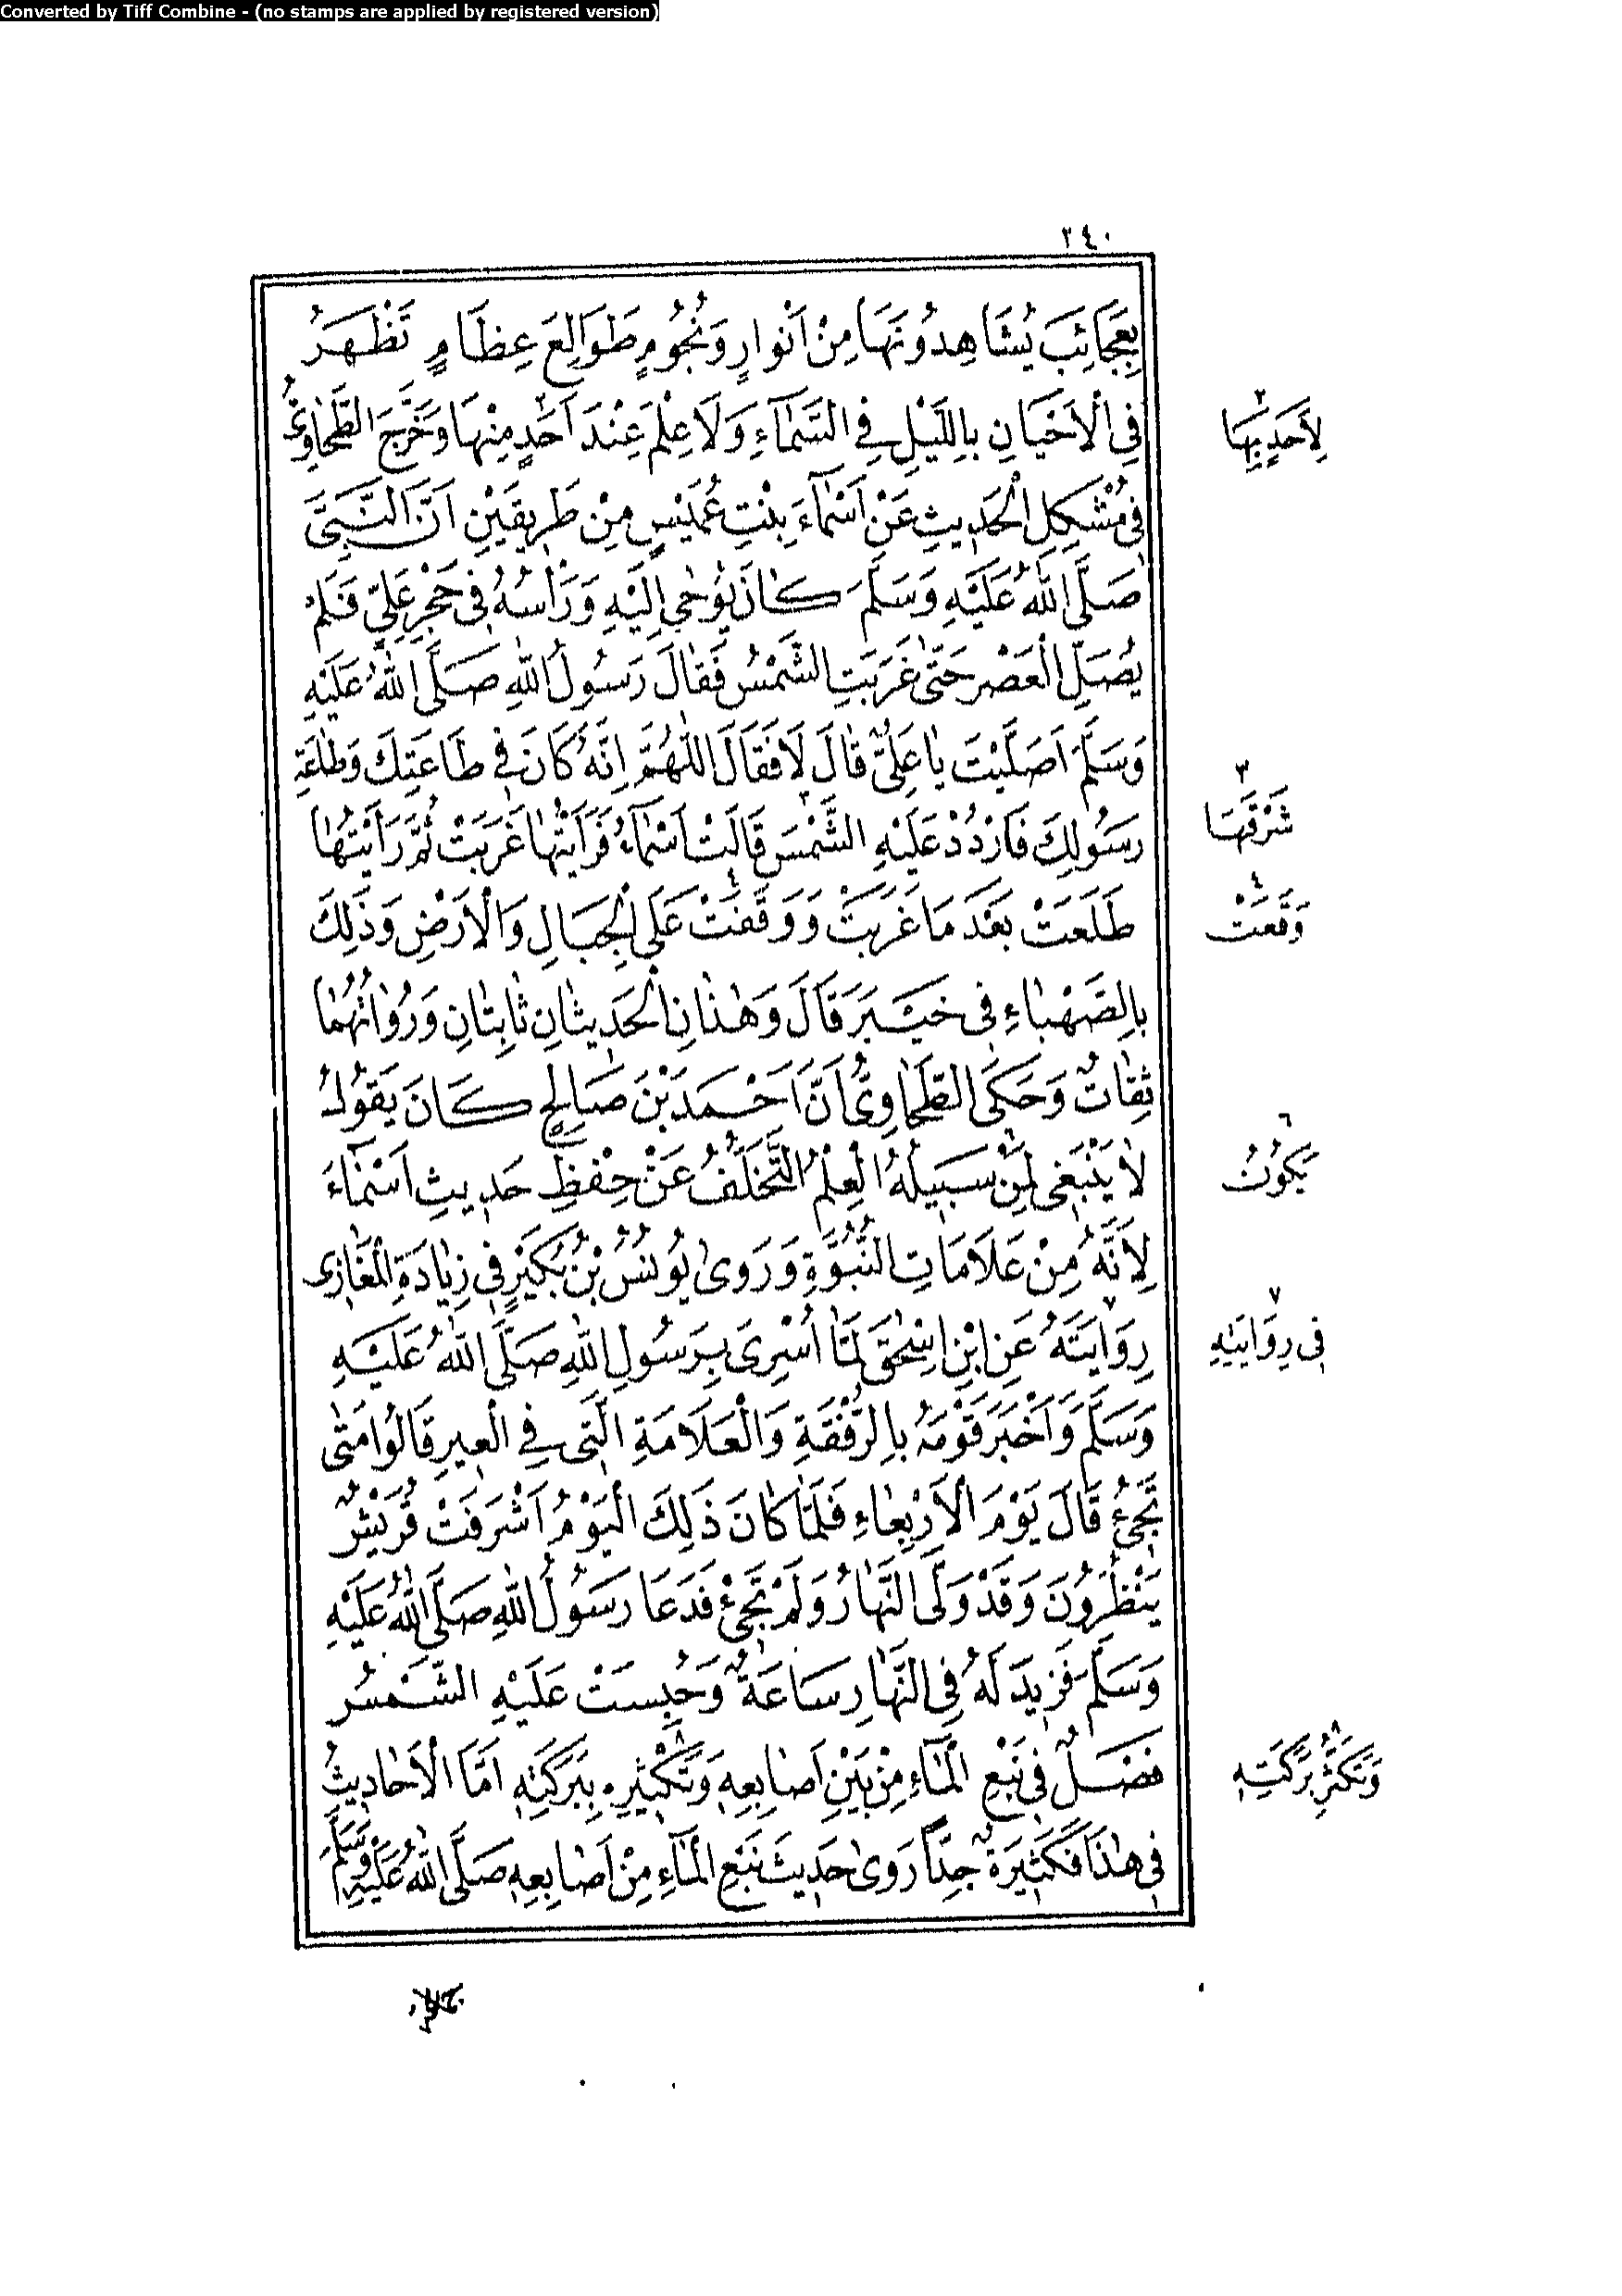 Converted by Tiff Combine - (no stamps are applied by registered version)
٢٤٠
بِعَجَائِبَ يُشَاهِدُونَهَا مِنْ اَنْوارٍ وَنُجُومٍ طَوَالِعَ عِظَامٍ تَظْهَرُ
فِى الْاَحْيَانِ بِاللَّيْلِ فِى السَّمَآءِ وَلَا عِلْمَ عِنْدَ اَحَدٍ مِنْهَا وَخَرَّجَ الطَّحَاوِىُّ
فِى مُشْكِلِ الْحَدِيثِ عَنْ اَسْمَآءَ بِنْتِ عُمَيْسٍ مِنْ طَرِيقَيْنِ اَنَّ النَّبِىَّ
صَلَّى اللهُ عَلَيْهِ وَسَلَّمَ كَانَ يُوحٰى اِلَيْهِ وَرَأْسُهُ فِى حَجْرِ عَلِىٍّ فَلَمْ
يُصَلِّ الْعَصْرَ حَتّٰى غَرَبَتِ الشَّمْسُ فَقَالَ رَسُولُ اللهِ صَلَّى اللهُ عَلَيْهِ
وَسَلَّمَ اَصَلَّيْتَ يَا عَلِىُّ قَالَ لَا فَقَالَ اللّٰهُمَّ اِنَّهُ كَانَ فِى طَاعَتِكَ وَطَاعَةِ
رَسُولِكَ فَارْدُدْ عَلَيْهِ الشَّمْسَ قَالَتْ اَسْمَآءُ فَرَاَيْتُهَا غَرَبَتْ ثُمَّ رَاَيْتُهَا
طَلَعَتْ بَعْدَ مَا غَرَبَتْ وَوَقَفَتْ عَلَى الْجِبَالِ وَالْاَرْضِ وَذٰلِكَ
بِالصَّهْبَاءِ فِى خَيْبَرَ قَالَ وَهٰذَانِ الْحَدِيثَانِ ثَابِتَانِ وَرُوَاتُهُمَا
ثِقَاتٌ وَحَكَى الطَّحَاوِىُّ اَنَّ اَحْمَدَ بْنَ صَالِحٍ كَانَ يَقُولُ
لَا يَنْبَغِى لِمَنْ سَبِيلُهُ الْعِلْمُ التَّخَلُّفُ عَنْ حِفْظِ حَدِيثِ اَسْمَآءَ
لِاَنَّهُ مِنْ عَلَامَاتِ النُّبُوَّةِ وَرَوٰى يُونُسُ بْنُ بُكَيْرٍ فِى زِيَادَةِ الْمَغَازِى
رِوَايَتَهُ عَنِ ابْنِ اِسْحٰقَ لَمَّا اُسْرِىَ بِرَسُولِ اللهِ صَلَّى اللهُ عَلَيْهِ
وَسَلَّمَ وَاَخْبَرَ قَوْمَهُ بِالرُّفْقَةِ وَالْعَلَامَةِ الَّتِى فِى الْعِيرِ قَالُوا مَتٰى
تَجِئُ قَالَ يَوْمَ الْاَرْبِعَاءِ فَلَمَّا كَانَ ذٰلِكَ الْيَوْمُ اَشْرَفَتْ قُرَيْشٌ
يَنْظُرُونَ وَقَدْ وَلَّى النَّهَارُ وَلَمْ تَجِئْ فَدَعَا رَسُولُ اللهِ صَلَّى اللهُ عَلَيْهِ
وَسَلَّمَ فَزِيدَ لَهُ فِى النَّهَارِ سَاعَةٌ وَحُبِسَتْ عَلَيْهِ الشَّمْسُ
فَصْلٌ فِى نَبْعِ الْمَآءِ مِنْ بَيْنِ اَصَابِعِهِ وَتَكْثِيرِهِ بِبَرَكَتِهِ اَمَّا الْاَحَادِيثُ
فِى هٰذَا فَكَثِيرَةٌ جِدًّا رَوٰى حَدِيثَ نَبْعِ الْمَآءِ مِنْ اَصَابِعِهِ صَلَّى اللهُ عَلَيْهِ وَسَلَّمَ
٢
لِاَحَدٍ بِهَا
٣
شَرْقَهَا
٤
وَقَعَتْ
٦
يَكُونُ
٧
فِى رِوَايَتِهِ
٨
وَتَكَثُّرِ بَرَكَتِهِ